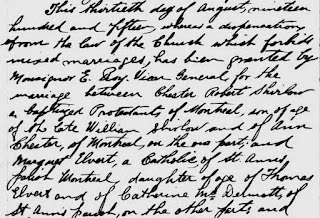 This thirtieth day of August, nineteen
hundred and fifteen, whereas dispensation
from the law of the Church which forbids
mixed marriages, has been granted by
Monsignor E. Roy Vicar General, for the
marriage between Chester Robert Shirlow
a baptized Protestants of Montreal, son of age
of the late William Shirlow and of Ann
Chester, of Montreal, on the one part; and
Margaret Elvert, a Catholic of St Ann's
parish Montreal, daughter of age of Thomas
Elvert and of Catherine McDermott, of
St Ann's parish, on the other part; and